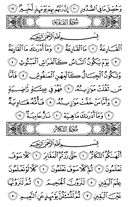 وَحُصِّلَ مَا فِي ٱلصُّدُورِ ١٠ إِنَّ رَبَّهُم بِهِمْ يَوْمَئِذٍ لَّخَبِيرٌ ١١
سُورَةُ ٱلْقَارِعَةِ
بِسْمِ ٱللَّهِ ٱلرَّحْمَٰنِ ٱلرَّحِيمِ
ٱلْقَارِعَةُ ١ مَا ٱلْقَارِعَةُ ٢ وَمَآ أَدْرَىٰكَ مَا ٱلْقَارِعَةُ
٣ يَوْمَ يَكُونُ ٱلنَّاسُ كَٱلْفَرَاشِ ٱلْمَبْثُوثِ ٤
وَتَكُونُ ٱلْجِبَالُ كَٱلْعِهْنِ ٱلْمَنفُوشِ ٥ فَأَمَّا مَن ثَقُلَتْ
مَوَٰزِينُهُۥ ٦ فَهُوَ فِي عِيشَةٍ رَّاضِيَةٍ ٧ وَأَمَّا مَنْ خَفَّتْ
مَوَٰزِينُهُۥ ٨ فَأُمُّهُۥ هَاوِيَةٌ ٩ وَمَآ أَدْرَىٰكَ مَا هِيَهْ ١٠ نَارٌ حَامِيَةٌۢ ١١
سُورَةُ ٱلتَّكَاثُرِ
بِسْمِ ٱللَّهِ ٱلرَّحْمَٰنِ ٱلرَّحِيمِ
أَلْهَىٰكُمُ ٱلتَّكَاثُرُ ١ حَتَّىٰ زُرْتُمُ ٱلْمَقَابِرَ ٢ كَلَّا سَوْفَ تَعْلَمُونَ
٣ ثُمَّ كَلَّا سَوْفَ تَعْلَمُونَ ٤ كَلَّا لَوْ تَعْلَمُونَ عِلْمَ
ٱلْيَقِينِ ٥ لَتَرَوُنَّ ٱلْجَحِيمَ ٦ ثُمَّ لَتَرَوُنَّهَا عَيْنَ
ٱلْيَقِينِ ٧ ثُمَّ لَتُسْـَٔلُنَّ يَوْمَئِذٍ عَنِ ٱلنَّعِيمِ ٨